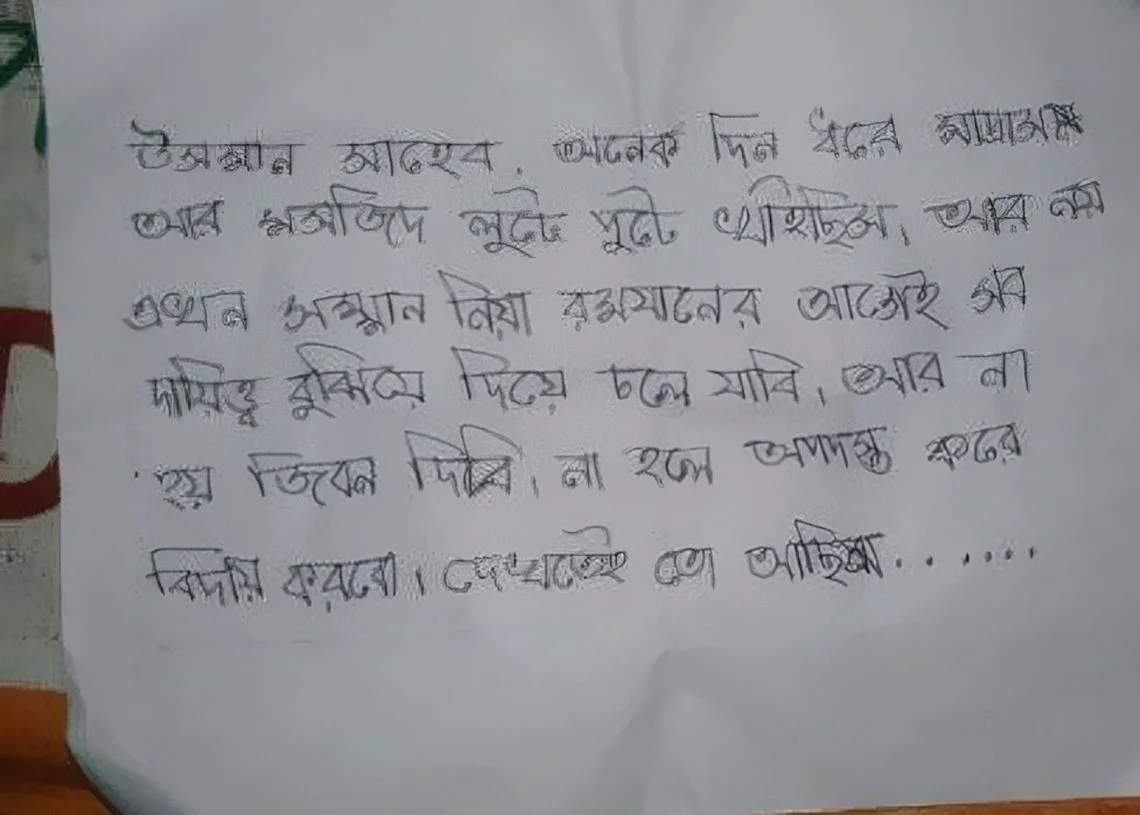 উসমান সাহেব, অনেক দিন ধরে
আর মসজিদে লুটে পুটে খাইছিস, আর নয়
এখন সম্মান নিয়া রমযানের আগেই সব
দায়িত্ব বুঝিয়ে দিয়ে চলে যাবি, আর না
হয় জিবন দিবি, না হলে অপদস্ত করে
বিদায় করবো। দেখতেই তো আছিস.......